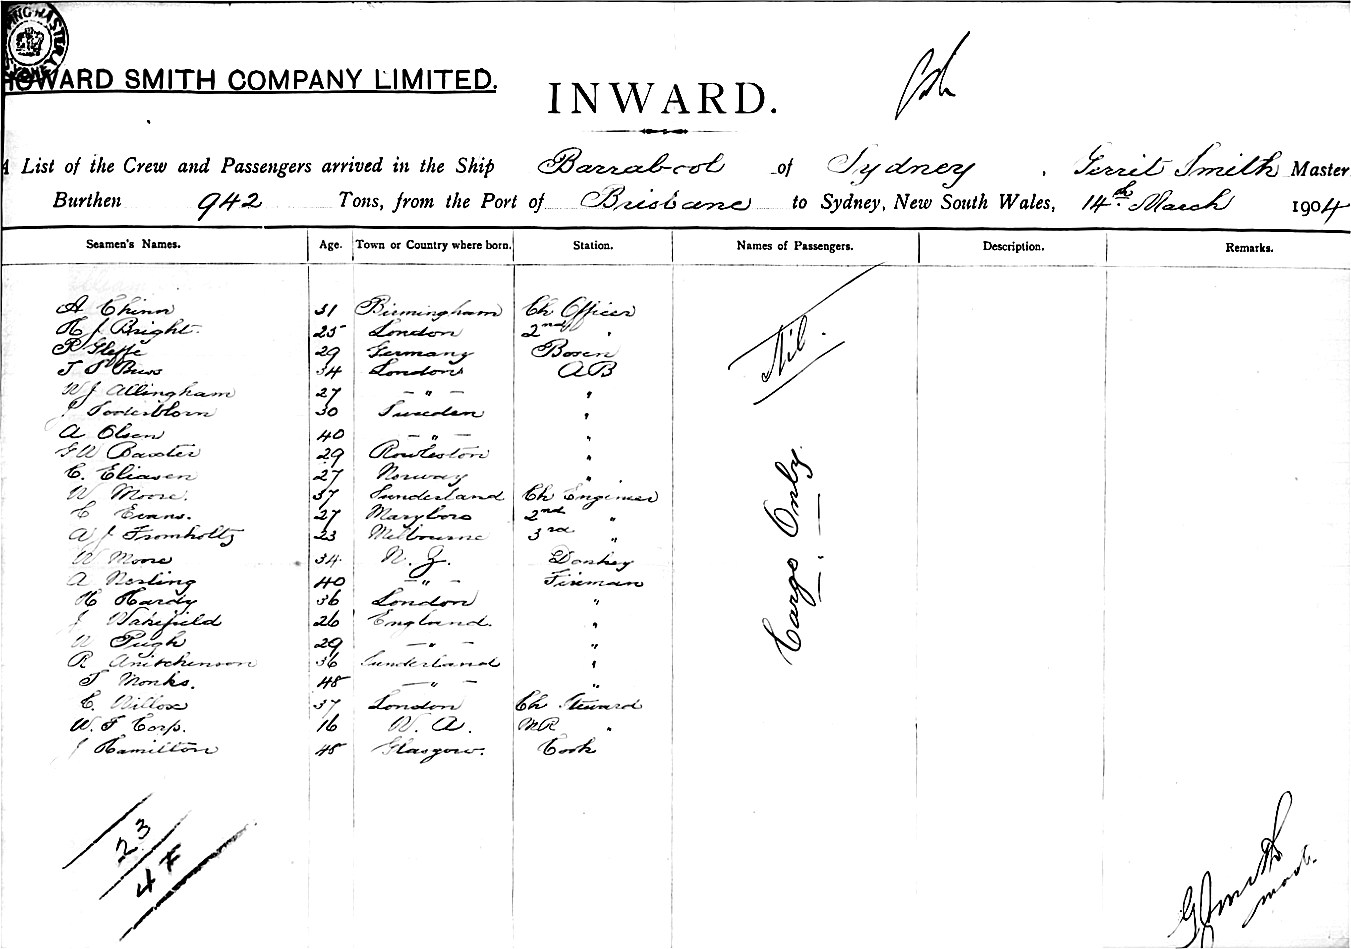 HOWARD SMITH COMPANY LIMITED.
INWARD.
A List of the Crew and Passengers arrived in the Ship Barrabool of Sydney, Gerrit Smith Master
Burthen 942 Tons, from the Port of Brisbane to Sydney, New South Wales, 14th March 1904
Seamen's Names. Age. Town or Country where born. Station. Names of Passengers. Description. Remarks.
A Chinn 31 Birmingham Ch Officer
H J Bright. 25 London 2nd "
R 29 Germany Bosen
34 London AB
W J Allingham 27 – " – "
J Soderblom 30 Sweden "
A Olsen 40 – " – "
G W Baxter 29 Rowleston "
C. Eliasen 27 Norway "
W Moore. 37 Sunderland Ch Engineer
C Evans. 27 Maryboro 2nd "
A J Fromholtz 23 Melbourne 3rd "
W Moore 34 N. Z. Donkey
A Nesling 40 – " – Fireman
H Hardy 36 London "
J Wakefield 26 England. "
W Pugh 29 – " – "
R 36 Sunderland "
T Monks. 48 – " – "
C. Willox 37 London Ch Steward
W. T Corp. 16 W. A. MR "
J Hamilton 48 Glasgow. Cook
Nil.
Cargo Only.
23
4 F
G Smith
mast.